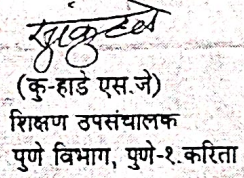 (कु-हाडे एस.जे)
शिक्षण उपसंचालक
पुणे विभाग, पुणे-१.करिता